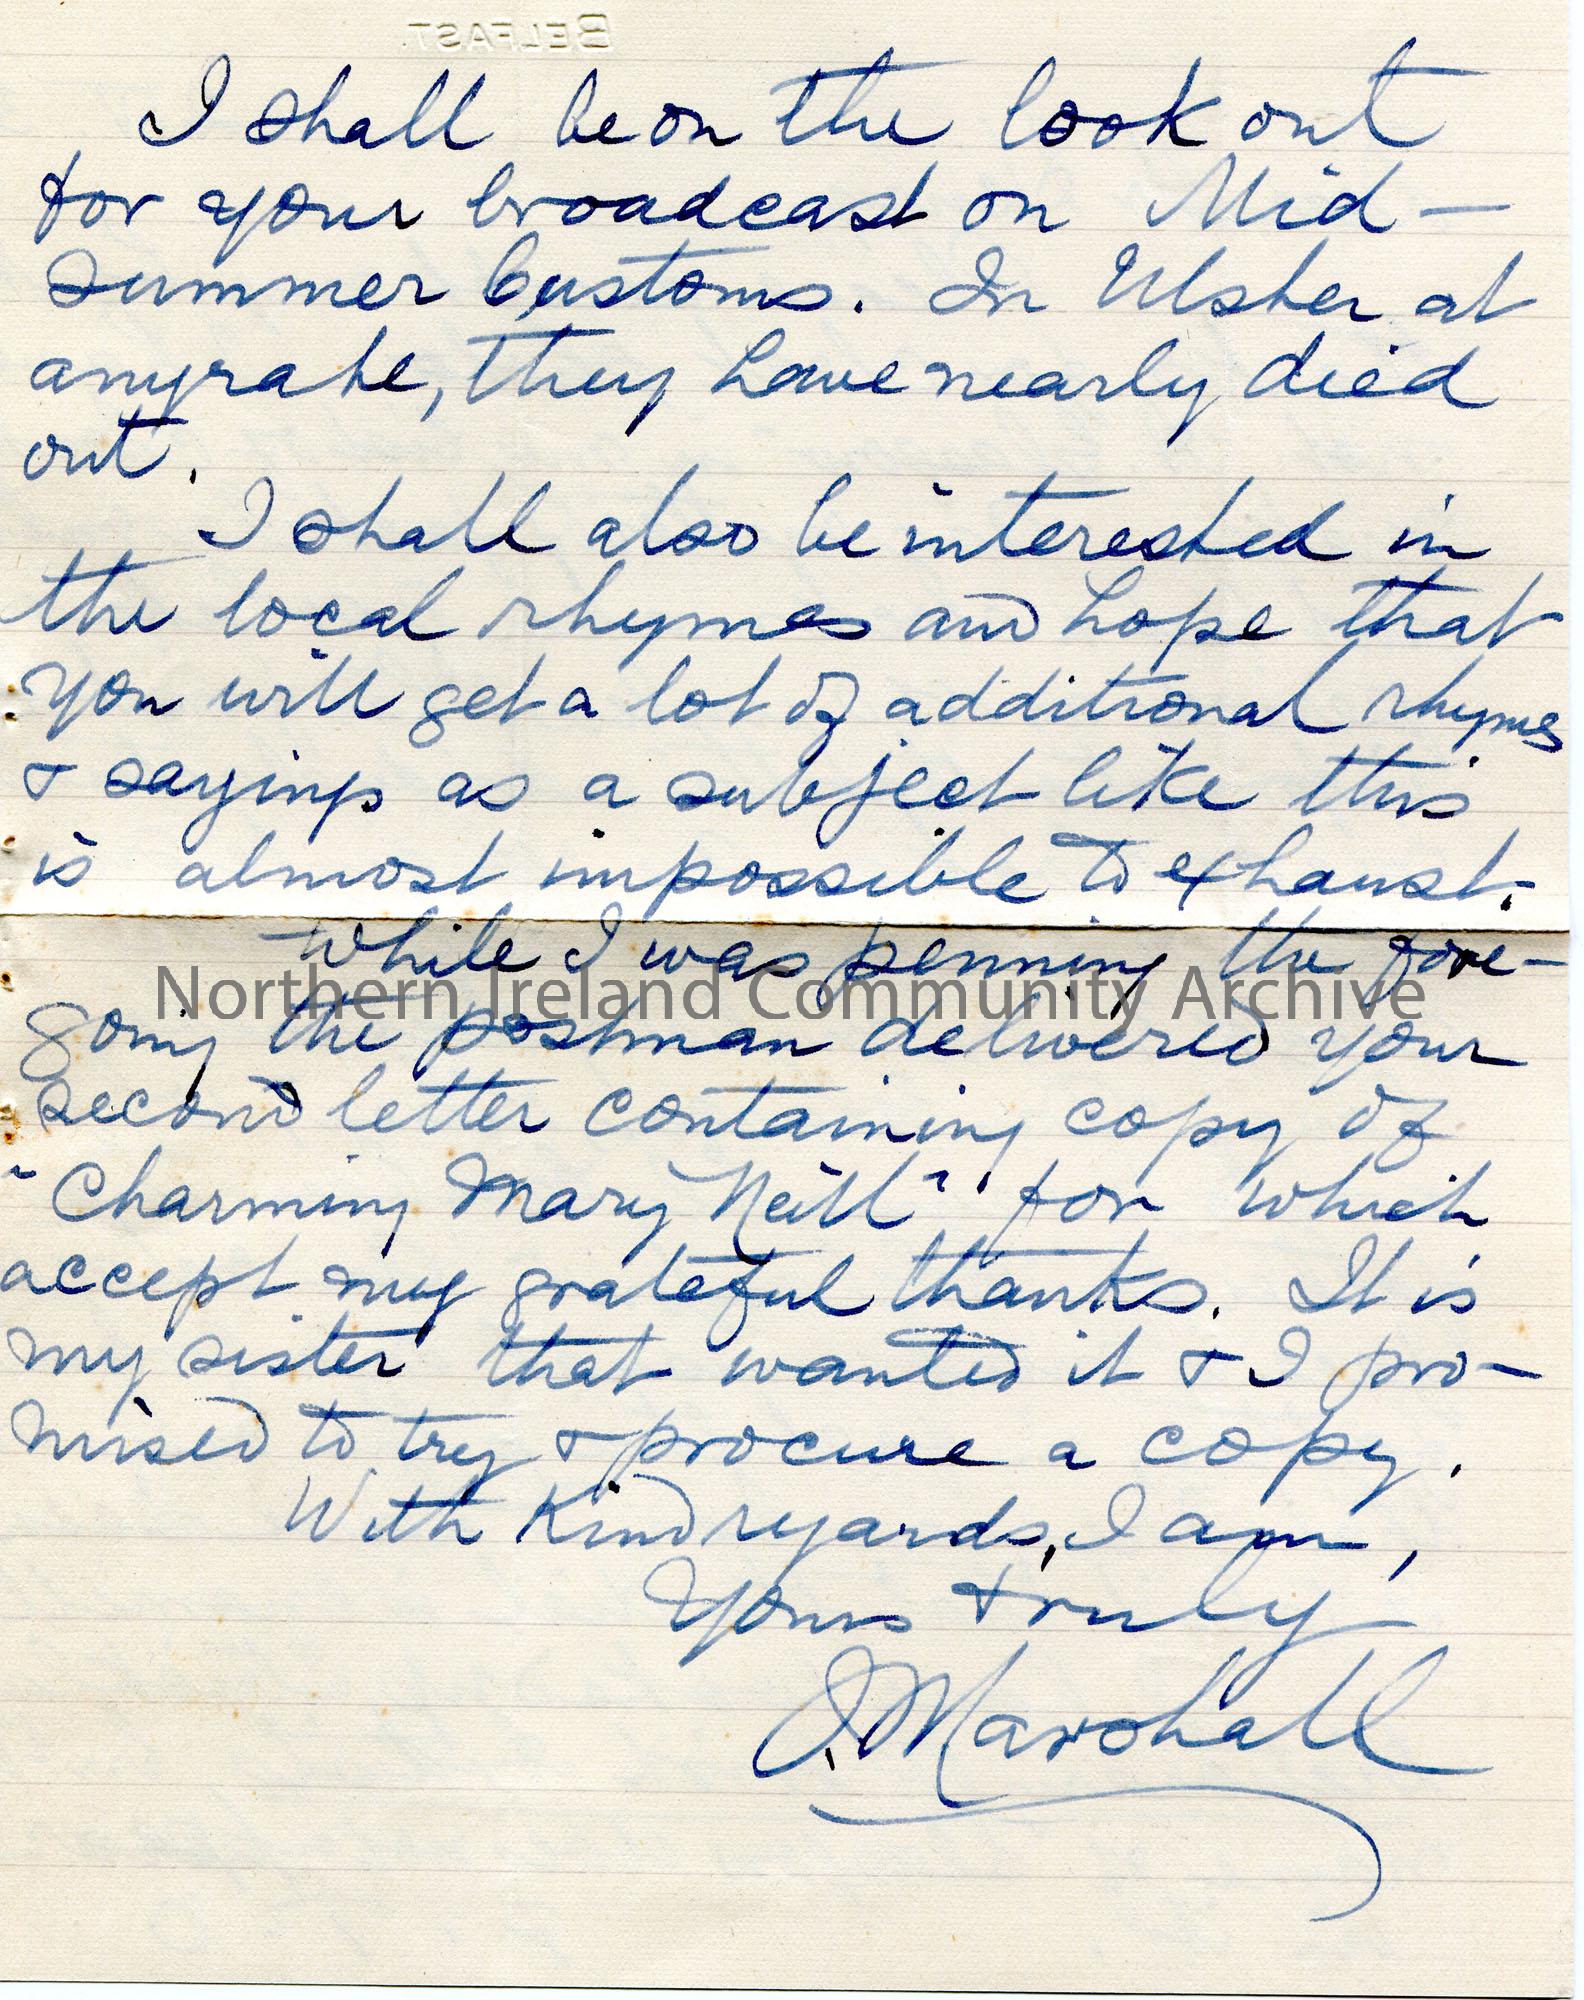 BELFAST.
I shall be on the look out
for your broadcast on Mid-
summer Customs. In Ulster at
anyrate, they have nearly died
out.
I shall also be interested in
the local rhymes and hope that
you will get a lot of additional rhymes
& sayings as a subject like this
is almost impossible to exhaust.
While I was penning the fore-
Northern Ireland Community Archive
going the postman delivered your
second letter containing copy of
"Charming Mary Neill" for which
accept my grateful thanks. It is
my sister that wanted it & I pro-
mised to try & procure a copy.
With Kind regards, I am,
Yours truly
J. Marshall